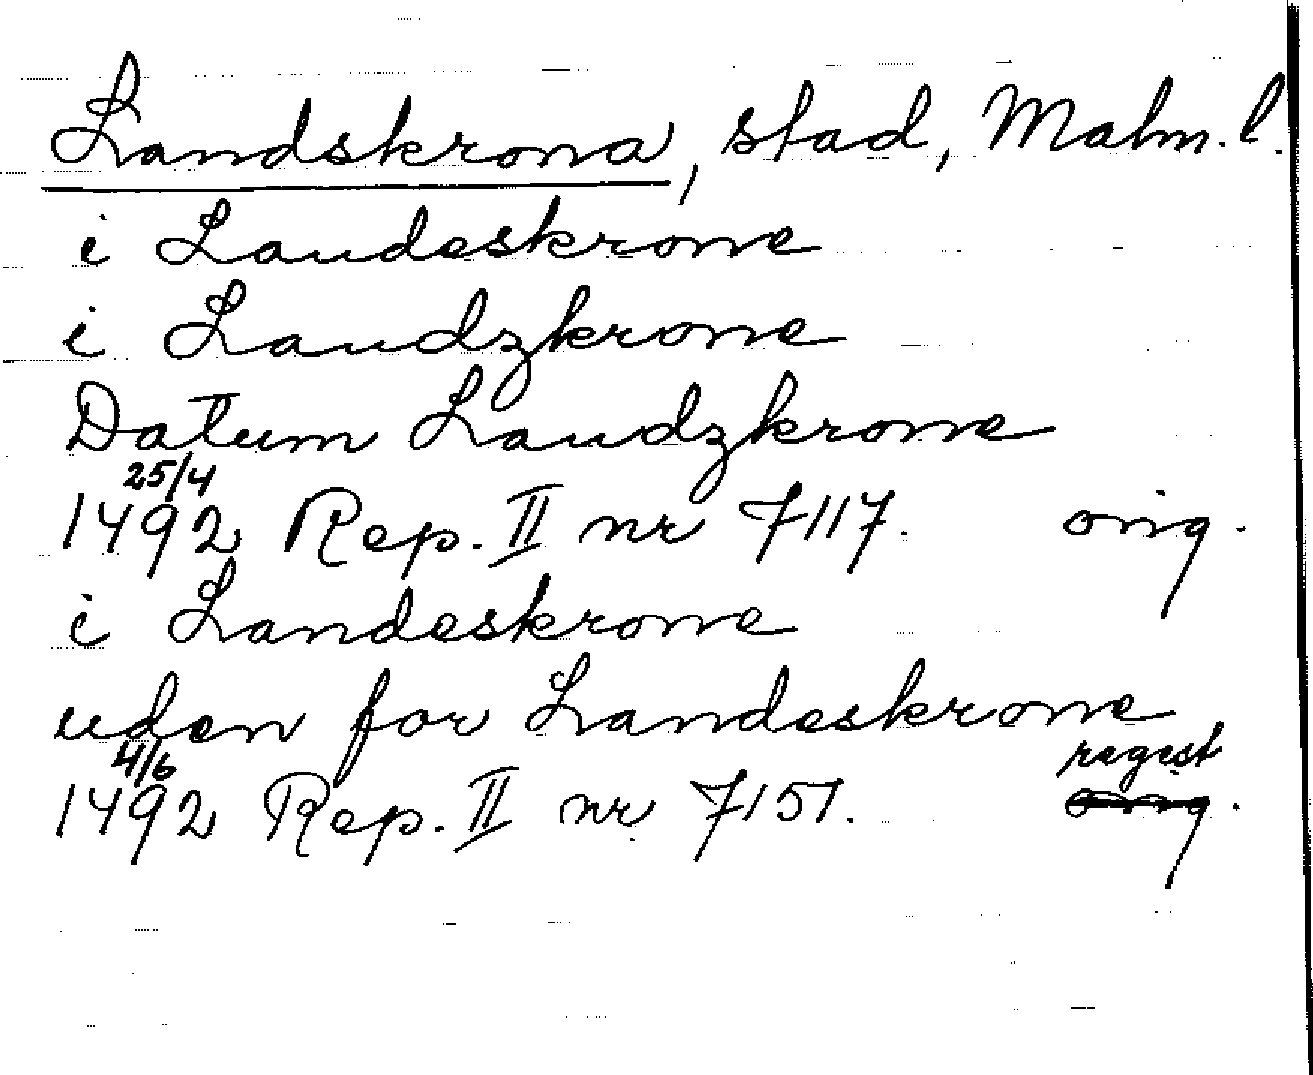 Landskrona, stad, Malm. l.
i Landeskrone
i Landzkrone
Datum Landzkrone
25/4
1492 Rep. II nr 7117. orig.
i Landeskrone
uden for Landeskrone
4/6 regest
1492 Rep. II nr 7151. orig.